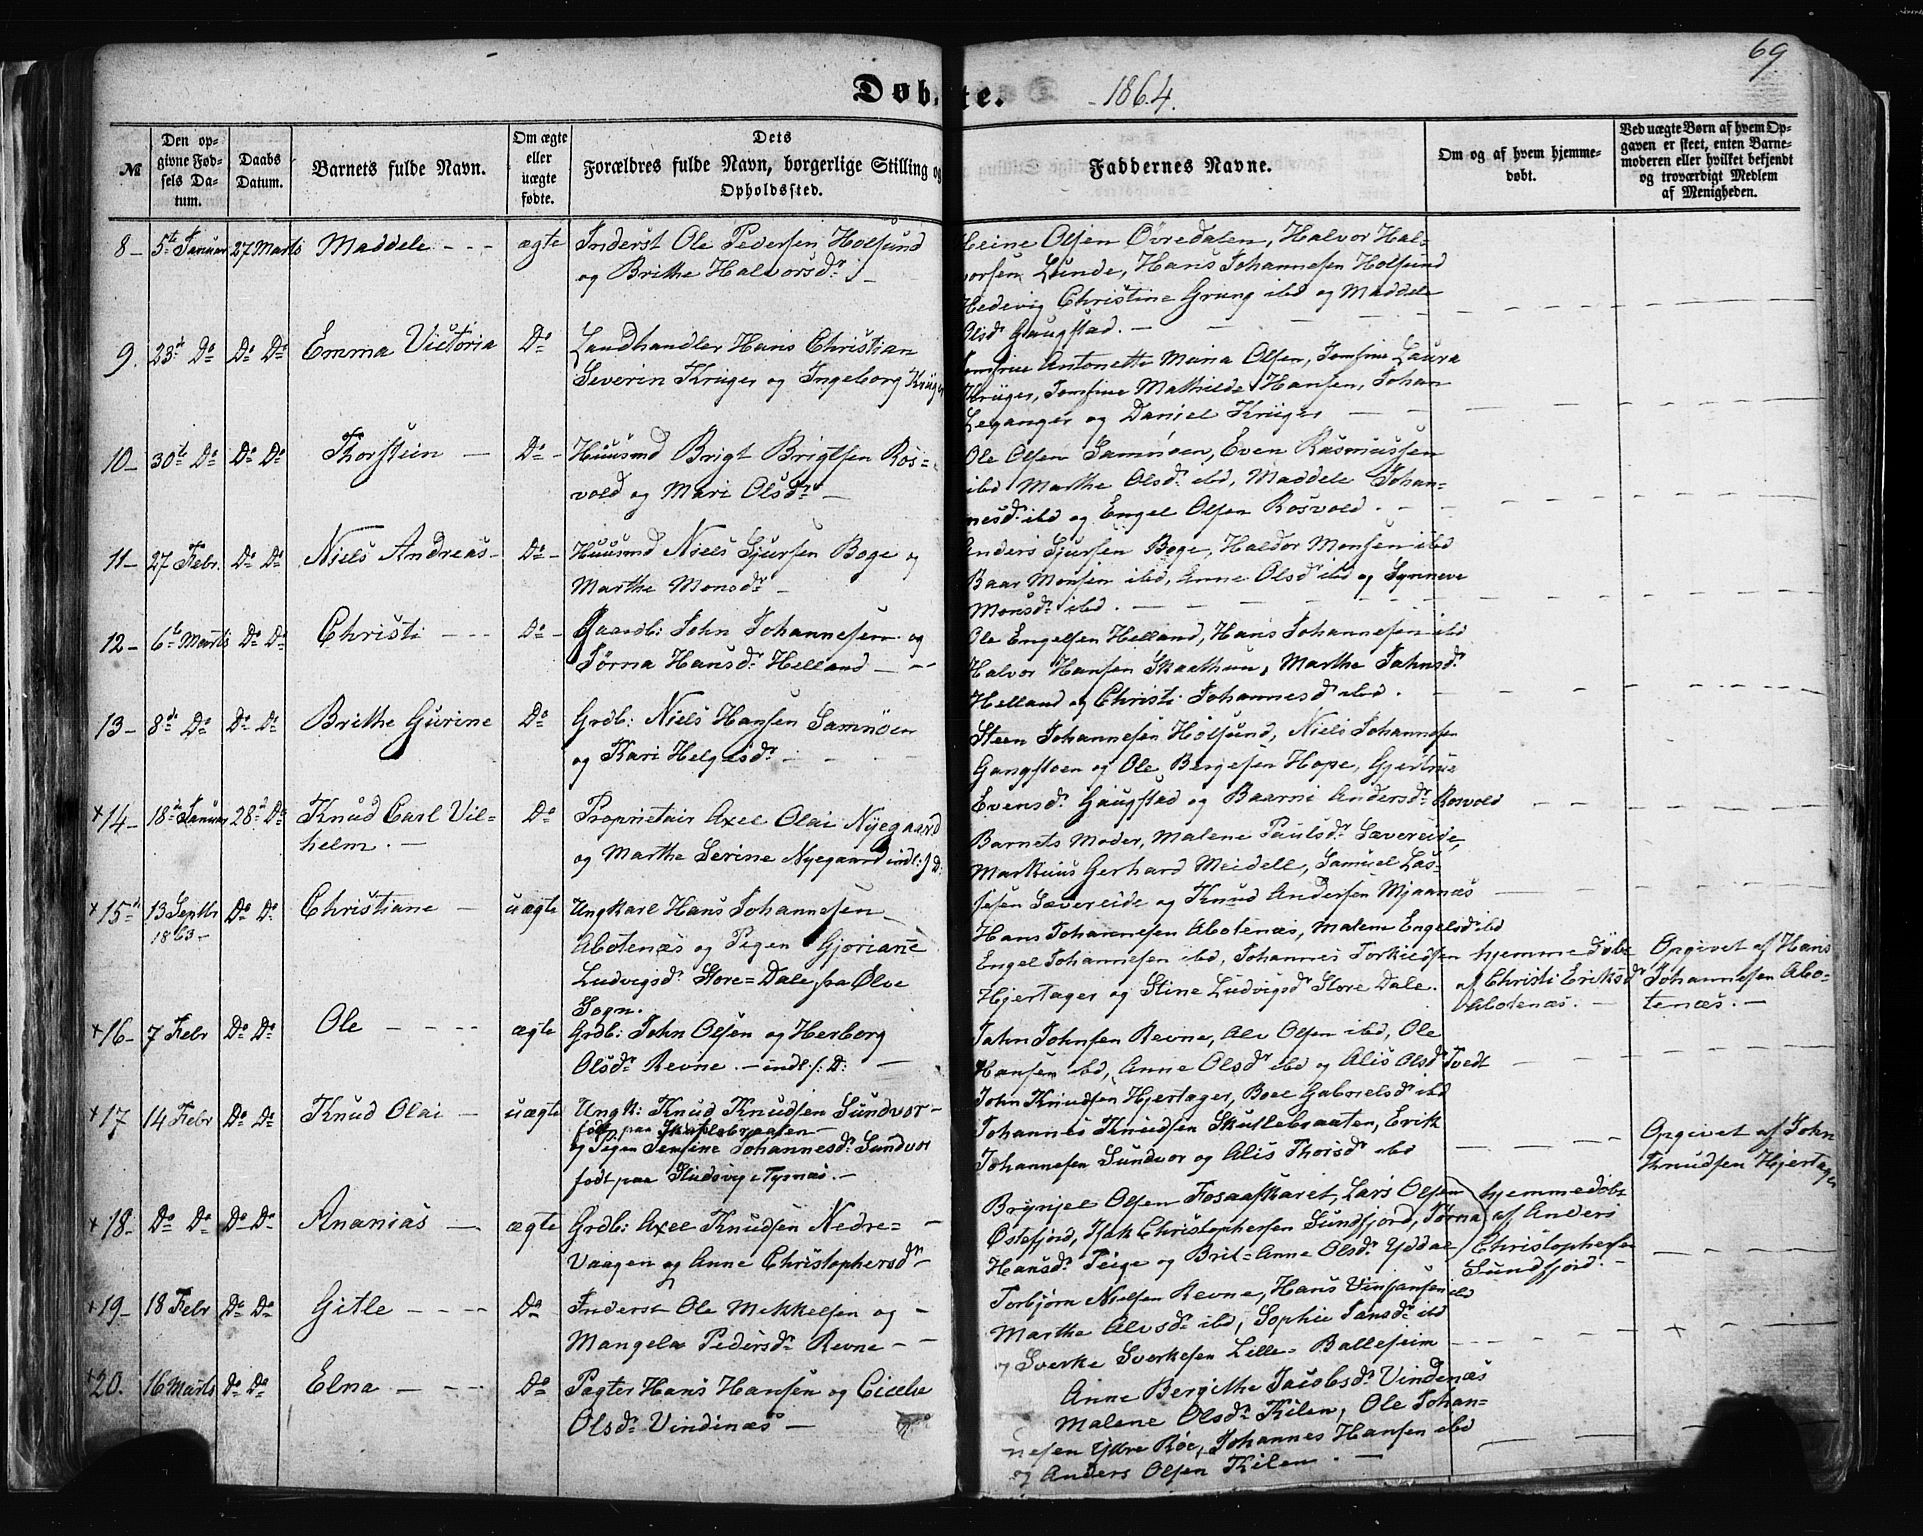 69
Døbte. 1864.
№
Den opgivne Fødsels Datum.
Daabs Datum.
Barnets fulde Navn.
Om ægte eller uægte fødte.
Dets Forældres fulde Navn, borgerlige Stilling og Opholdssted.
Faddernes Navne.
Om og af hvem hjemmedøbt.
Ved uægte Børn af hvem Opgaven er skeet, enten Barnemoderen eller hvilket bekjendt og troværdigt Medlem af Menigheden.
8 – 5te Januar 27 Marts Maddele - - - ægte Inderst Ole Pedersen Holsund
og Brithe Halvorsdr. –
Heine Olsen Øvredalen, Halvor Hal-
vorsen Lunde, Hans Johannesen Holsund
Hedevig Christine Grung ibd og Maddele
Olsdr Gaugstad. –
9. 23de Do Do Do Emma Victoria Do Landhandler Hans Christian
Severin Krüger og Ingeborg Krüger
Jomfrue Antonette Maria Olsen, Jomfrue Laura
Krüger, Jomfrue Mathilde Hansen, Johan
Leganger og Daniel Krüger
10 – 30te Do Do Do Thorstein – Do – Huusmd Brigt Brigtsen Ros-
vold og Mari Olsdr –
Ole Olsen Samnøen, Even Rasmussen
ibd Marthe Olsdr ibd, Maddele Johan-
nesdr ibd og Engel Olsen Rosvold. –
11 – 27 Febr. Do Do Niels Andreas – Do – Huusmd Niels Sjursen Boge og
Marthe Monsdr –
Anders Sjursen Boge, Haldor Monsen ibd
Baar Monsen ibd, Anne Olsdr ibd og Synneve
Monsdr ibd.
12 – 6te Marts Do Do Christi - - - Do – Gaardb: John Johannesen og
Jørna Hansdr Helland – –
Ole Engelsen Helland, Hans Johannesen ibd
Halvor Hansen Skaathun, Marthe Johnsdr
Helland og Christi Johannesdr ibd.
13 – 8de Do Do Do Brithe Gurine Do Grdb: Niels Hansen Samnøen
og Kari Helgesdr –
Steen Johannesen Holsund, Niels Johannesen
Gangstøen og Ole Bergesen Hope, Gjertrue
Evensdr Gaugstad og Baarni Andersdr Rosvold
+14 – 18de Januar 28de Do Knud Carl Vil-
helm. – Do Proprietair Axel Olai Nyegaard
og Marthe Serine Nyegaard indl: f. D:
Barnets Moder, Malene Paulsdr Sævereide,
Markuus Gerhard Meidell, Samuel Las-
sesen Sævereide og Knud Andersen Mjaanæs
+15de 13 Septbr 1863 – Do Do Christiane – uægte Ungkarl Hans Johannesen
Abotenæs og Pigen Gjøriane
Ludvigsdr Store = Dale, fra Ølve
Sogn.
Hans Johannesen Abotenæs, Malene Engelsdr ibd
Engel Johannesen ibd, Johannes Torkildsen
Hjertager og Stine Ludvigsdr Store Dale.
hjemme døbt
af Christi Eriksdr
Abotenæs. –
Opgivet af Hans
Johannesen Abo-
tenæs. –
+16 – 7 Febr Do Do Ole - - - - ægte Grdb: John Olsen og Herborg
Olsdr Revne. – indl: f: D: –
John Johnsen Revne, Alv Olsen ibd, Ole
Hansen ibd, Anne Olsdr ibd og Alis Olsdr Tvedt
+17 14 Febr Do Do Knud Olai – uægte Ungk: Knud Knudsen Sundvor –
født paa Skutlebraaten –
og Pigen Semine Johannesdr Sundvor
født paa Hudsvig i Tysnæs. –
John Knudsen Hjertager, Boel Gabrielsdr ibd
Johannes Knudsen Skutlebraaten, Erik
Johannesen Sundvor og Alis Thorsdr ibd
Opgivet af John
Knudsen Hjertager
+18 – Do Do Do Do Ananias – ægte Grdb: Axel Knudsen Nedre= –
Vaagen og Anne Christophersdr –
Brynjel Olsen Fosaaskaret, Lars Olsen
Østefjord, Isak Christophersen Sundfjord, Jørna
Hansdr Teige og Brit=Anne Olsdr Yddal
hjemmedøbt
af Anders
Christophersen
Sundfjord. –
+19 – 18 Febr Do Do Gitle - - - - Do Inderst Ole Mekkelsen og –
Mangela Pedersdr Revne – –
Torbjørn Nielsen Revne, Hans Vinsensen ibd
Marthe Alvsdr ibd, Sophie Jansdr ibd
og Sverke Sverkesen Lille= Balleseim
+20. 16 Marts Do Do Elna - - - - Do Pagter Hans Hansen og Cicelie
Olsdr Vindinæs –
Anne Bergithe Jacobsdr Vindenæs
Malene Olsdr Kilen, Ole Johan-
nesen Ydre Røe, Johannes Hansen ibd
og Anders Olsen Kilen. –